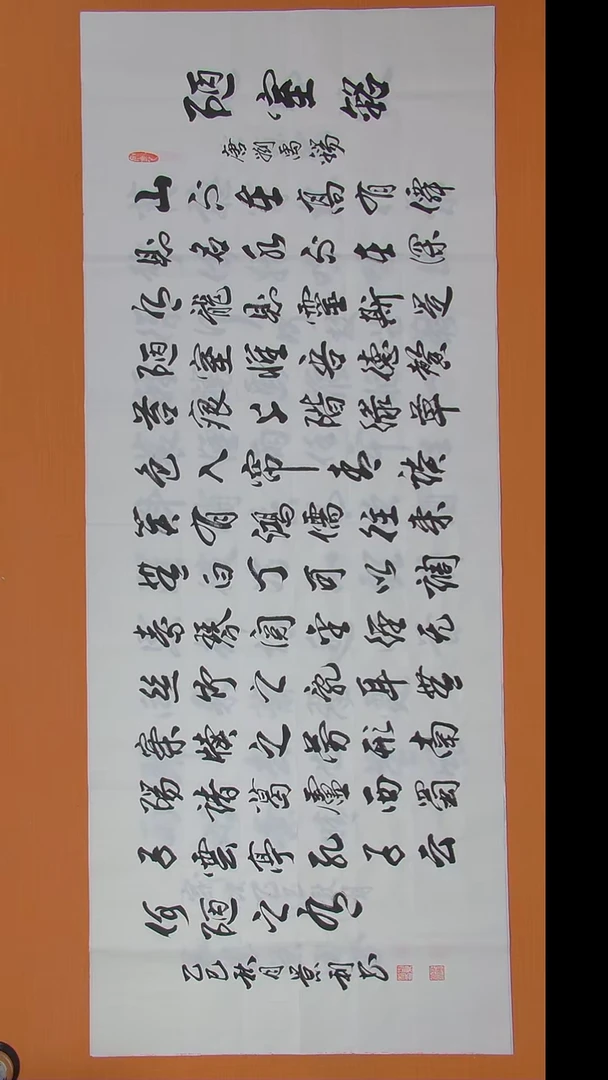 陋室铭
唐刘禹锡
山不在高有僊
则名水不在深
有龍则靈斯是
陋室惟吾德馨
苔痕上階绿草
色入帘青談
笑有鴻儒往来
無白丁可以調
素琴閲金经无
丝竹之亂耳無
案牍之劳形南
陽诸葛廬西蜀
子雲亭孔子云
何陋之有
乙巳秋月